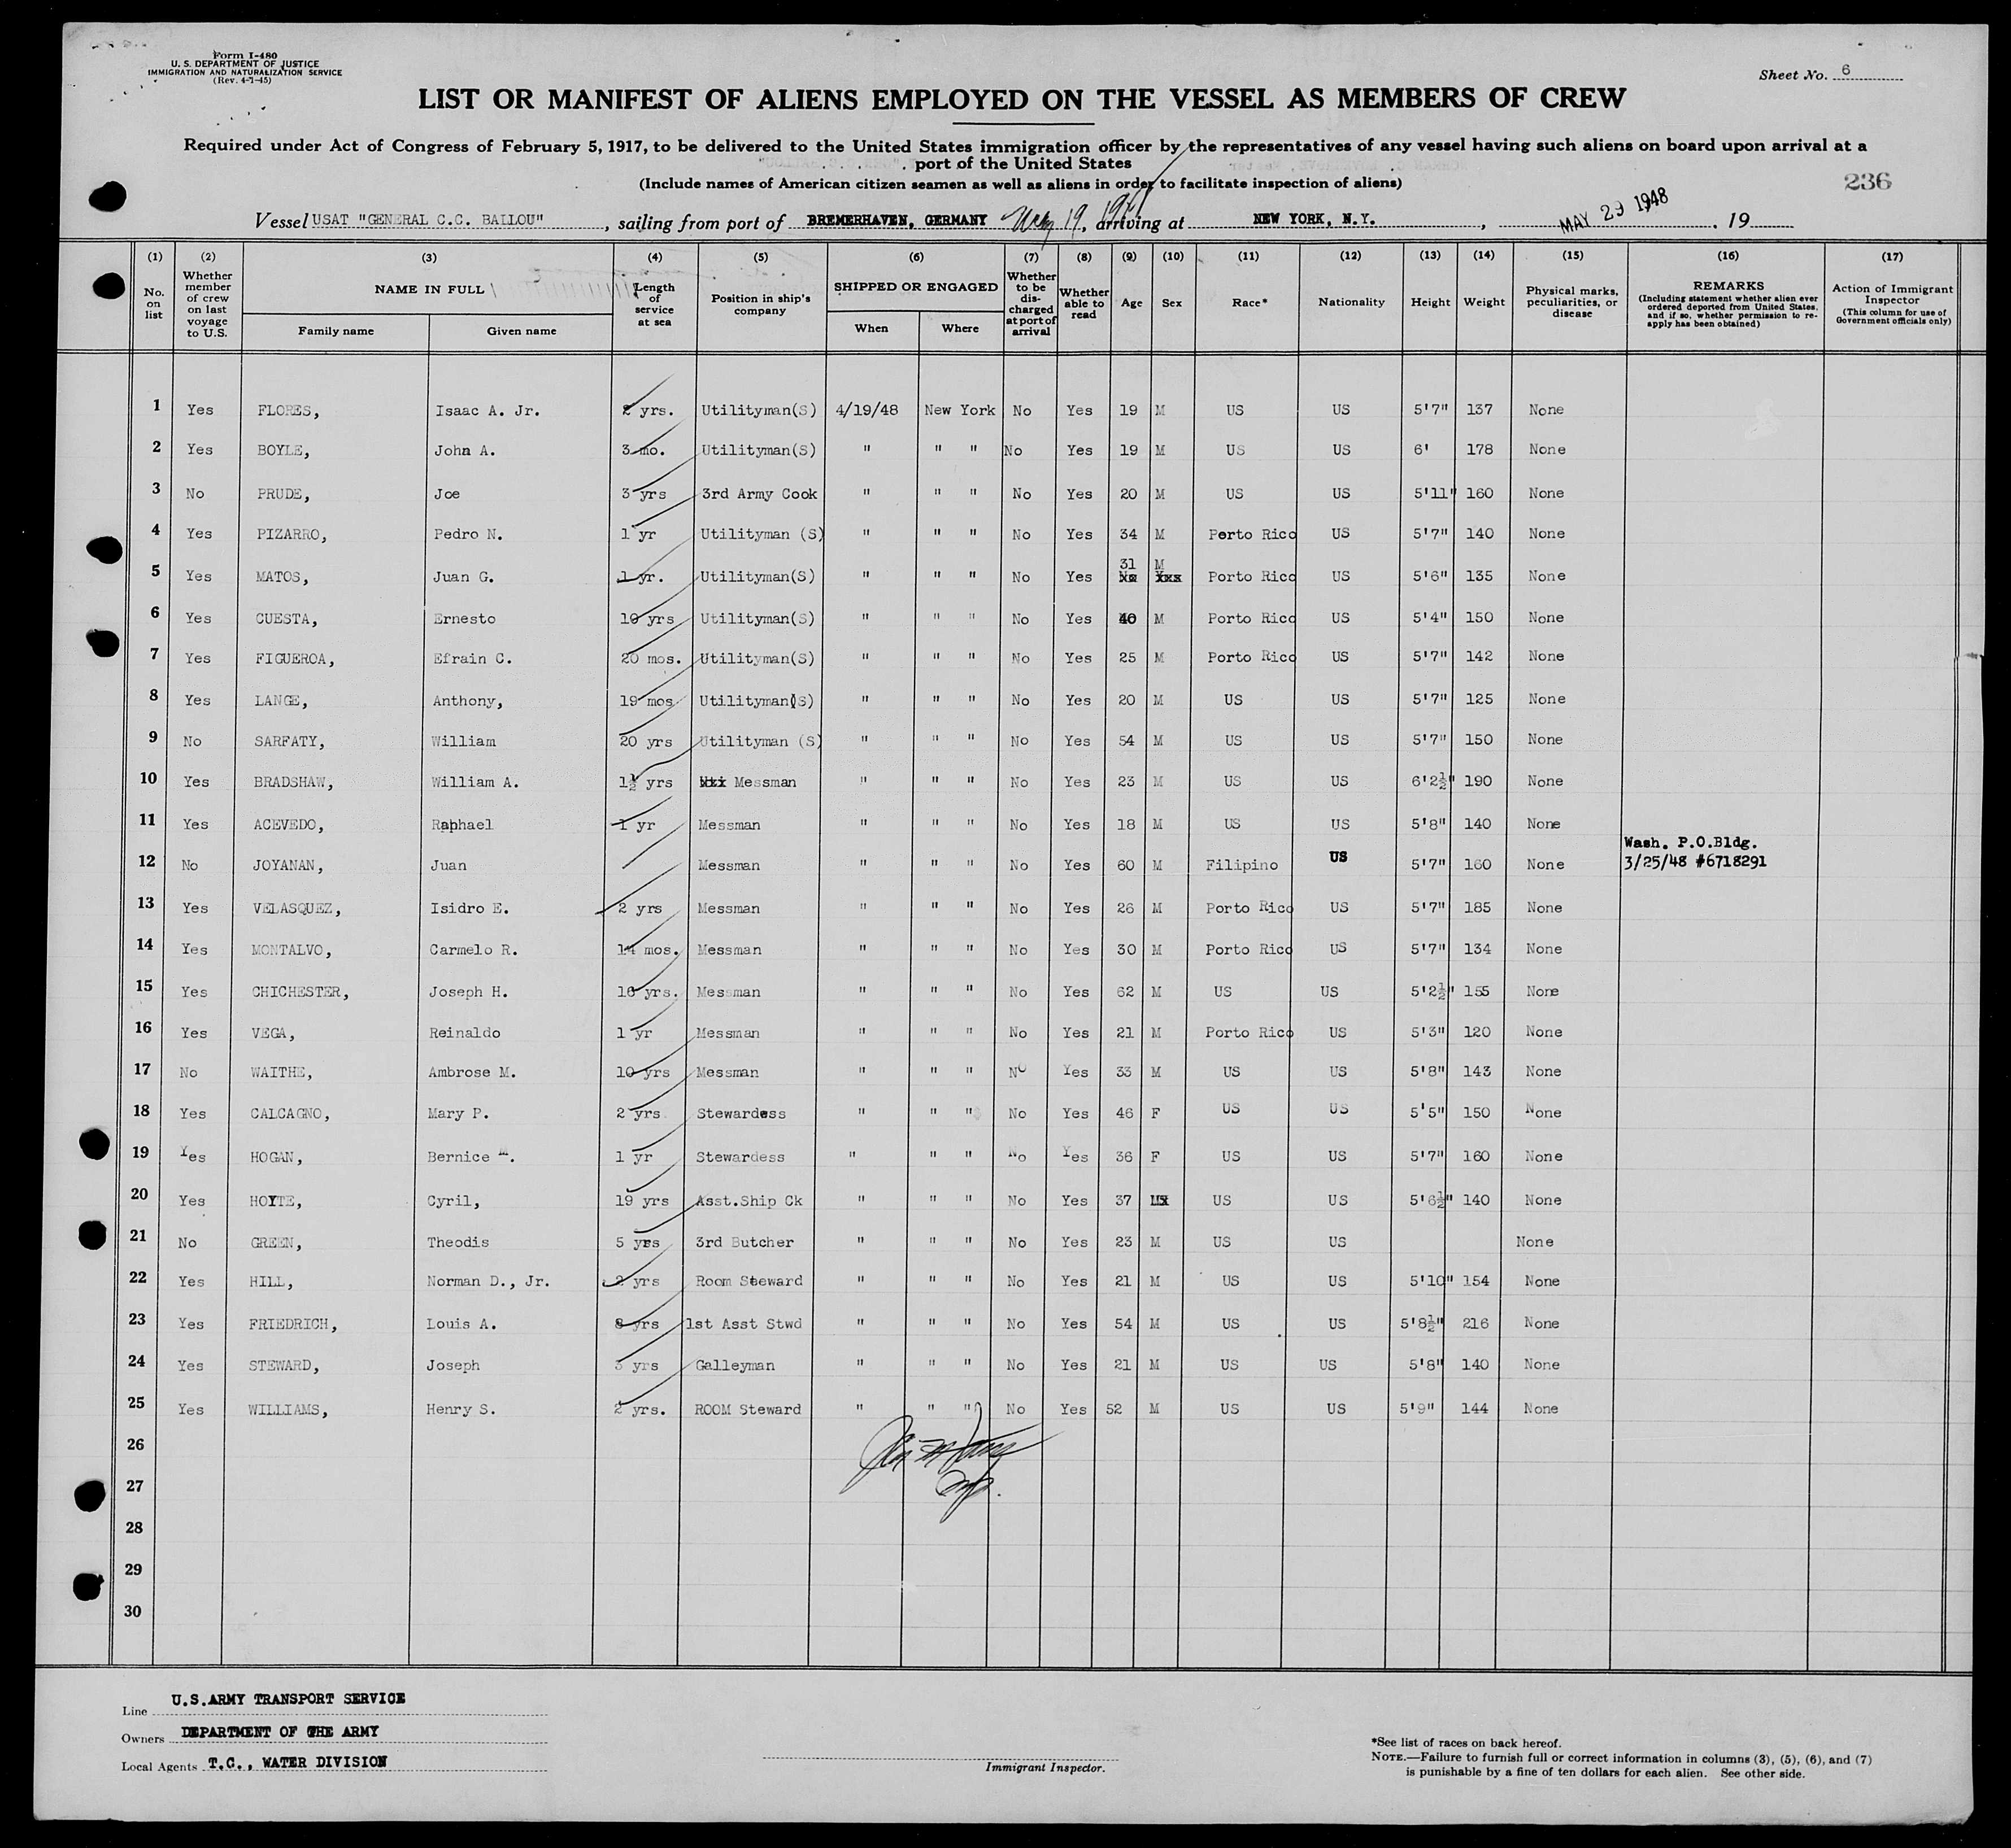 Form I-480
U. S. DEPARTMENT OF JUSTICE
IMMIGRATION AND NATURALIZATION SERVICE
(Rev. 4-1-45)
Sheet No. 6
LIST OR MANIFEST OF ALIENS EMPLOYED ON THE VESSEL AS MEMBERS OF CREW
Required under Act of Congress of February 5, 1917, to be delivered to the United States immigration officer by the representatives of any vessel having such aliens on board upon arrival at a
port of the United States
(Include names of American citizen seamen as well as aliens in order to facilitate inspection of aliens)
236
Vessel USAT "GENERAL C.C. BALLOU", sailing from port of BREMERHAVEN, GERMANY May 19, 1948, arriving at NEW YORK, N.Y., MAY 29 1948, 19
(1) (2) (3) (4) (5) (6) (7) (8) (9) (10) (11) (12) (13) (14) (15) (16) (17)
No. on list
Whether member of crew on last voyage to U.S.
NAME IN FULL
Family name Given name
Length of service at sea
Position in ship's company
SHIPPED OR ENGAGED
When Where
Whether to be discharged at port of arrival
Whether able to read
Age Sex Race* Nationality Height Weight
Physical marks, peculiarities, or disease
REMARKS
(Including statement whether alien ever ordered deported from United States, and if so, whether permission to re-apply has been obtained)
Action of Immigrant Inspector
(This column for use of Government officials only)
1 Yes FLORES, Isaac A. Jr. 2 yrs. Utilityman(S) 4/19/48 New York No Yes 19 M US US 5'7" 137 None
2 Yes BOYLE, John A. 3 mo. Utilityman(S) " " " No Yes 19 M US US 6' 178 None
3 No PRUDE, Joe 3 yrs 3rd Army Cook " " " No Yes 20 M US US 5'11" 160 None
4 Yes PIZARRO, Pedro N. 1 yr Utilityman (S) " " " No Yes 34 M Porto Rico US 5'7" 140 None
5 Yes MATOS, Juan G. 1 yr. Utilityman(S) " " " No Yes 31 M Porto Rico US 5'6" 135 None
6 Yes CUESTA, Ernesto 10 yrs Utilityman(S) " " " No Yes 40 M Porto Rico US 5'4" 150 None
7 Yes FIGUEROA, Efrain C. 20 mos. Utilityman(S) " " " No Yes 25 M Porto Rico US 5'7" 142 None
8 Yes LANGE, Anthony, 19 mos Utilityman(S) " " " No Yes 20 M US US 5'7" 125 None
9 No SARFATY, William 20 yrs Utilityman (S) " " " No Yes 54 M US US 5'7" 150 None
10 Yes BRADSHAW, William A. 1½ yrs Messman " " " No Yes 23 M US US 6'2½" 190 None
11 Yes ACEVEDO, Raphael 1 yr Messman " " " No Yes 18 M US US 5'8" 140 None
12 No JOYANAN, Juan Messman " " " No Yes 60 M Filipino US 5'7" 160 None Wash. P.O.Bldg.
3/25/48 #6718291
13 Yes VELASQUEZ, Isidro E. 2 yrs Messman " " " No Yes 26 M Porto Rico US 5'7" 185 None
14 Yes MONTALVO, Carmelo R. 14 mos. Messman " " " No Yes 30 M Porto Rico US 5'7" 134 None
15 Yes CHICHESTER, Joseph H. 16 yrs. Messman " " " No Yes 62 M US US 5'2½" 155 None
16 Yes VEGA, Reinaldo 1 yr Messman " " " No Yes 21 M Porto Rico US 5'3" 120 None
17 No WAITHE, Ambrose M. 10 yrs Messman " " " No Yes 33 M US US 5'8" 143 None
18 Yes CALCAGNO, Mary P. 2 yrs Stewardess " " " No Yes 46 F US US 5'5" 150 None
19 Yes HOGAN, Bernice M. 1 yr Stewardess " " " No Yes 36 F US US 5'7" 160 None
20 Yes HOYTE, Cyril, 19 yrs Asst.Ship Ck " " " No Yes 37 US US 5'6½" 140 None
21 No GREEN, Theodis 5 yrs 3rd Butcher " " " No Yes 23 M US US None
22 Yes HILL, Norman D., Jr. 2 yrs Room Steward " " " No Yes 21 M US US 5'10" 154 None
23 Yes FRIEDRICH, Louis A. 8 yrs 1st Asst Stwd " " " No Yes 54 M US US 5'8½" 216 None
24 Yes STEWARD, Joseph 3 yrs Galleyman " " " No Yes 21 M US US 5'8" 140 None
25 Yes WILLIAMS, Henry S. 2 yrs. ROOM Steward " " " No Yes 52 M US US 5'9" 144 None
26
27
28
29
30
Line U.S.ARMY TRANSPORT SERVICE
Owners DEPARTMENT OF THE ARMY
Local Agents T.C., WATER DIVISION
Immigrant Inspector.
*See list of races on back hereof.
NOTE.—Failure to furnish full or correct information in columns (3), (5), (6), and (7)
is punishable by a fine of ten dollars for each alien. See other side.